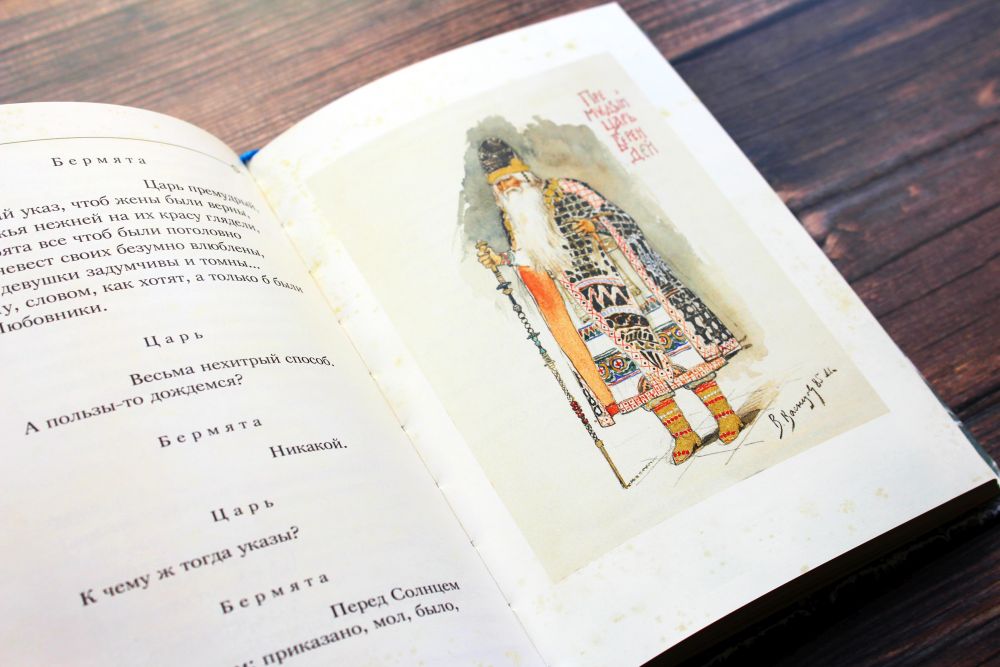 Бермята
Царь премудрый,
указ, чтоб жены были верны,
нежней на их красу глядели,
все чтоб были поголовно
своих безумно влюблены,
девушки задумчивы и томны...
словом, как хотят, а только б были
Любовники.
Царь
Весьма нехитрый способ.
А пользы-то дождемся?
Бермята
Никакой.
Царь
К чему ж тогда указы?
Бермята
Перед Солнцем
приказано, мол, было,
царь
Берен
дей